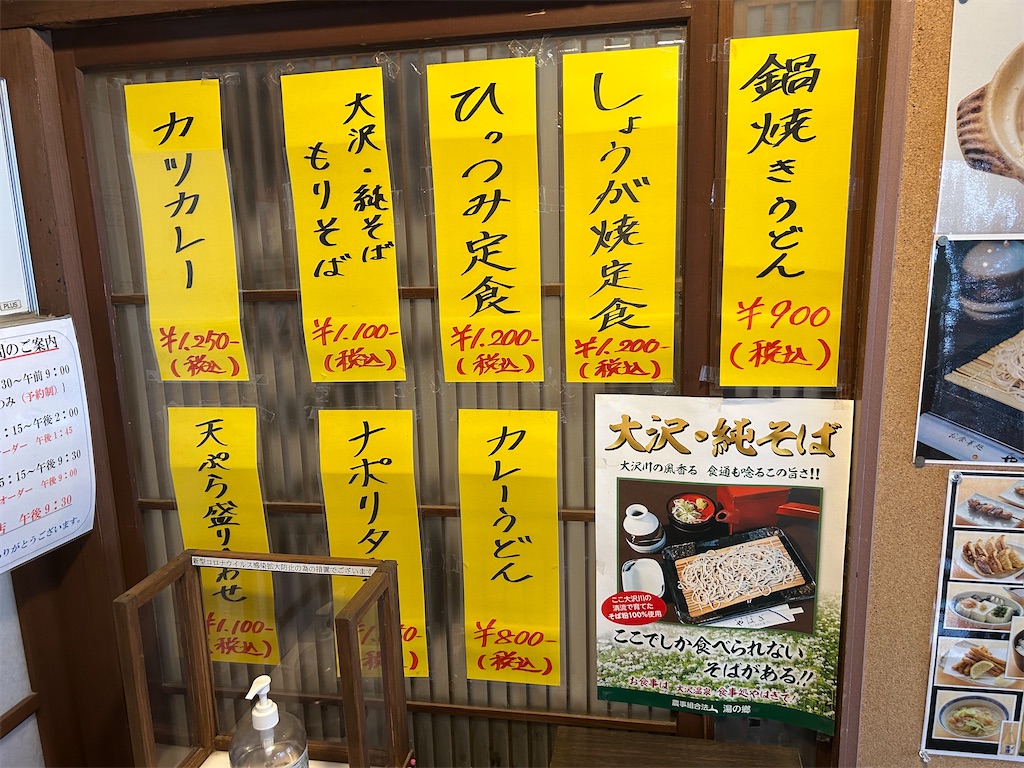 鍋焼きうどん
¥900
(税込)
しょうが焼定食
¥1.200-
(税込)
ひっつみ定食
¥1.200-
(税込)
大沢・純そば
もりそば
¥1.100-
(税込)
カツカレー
¥1.250-
(税込)
カレーうどん
¥800-
(税込)
ナポリタ
天ぷら盛り わせ
¥1.100-
(税込)
新型コロナウイルス感染拡大防止の為の措置でございます
大沢・純そば
大沢川の風香る 食通も唸るこの旨さ!!
ここ大沢川の
清流で育てた
そば粉100%使用
やはぎ
ここでしか食べられない
そばがある!!
お食事は、大沢温泉 食事処やはぎで!
農事組合法人 湯の郷
のご案内
30～午前9:00
つみ (予約制)
:15～午後2:00
ーダー 午後1:45
5:15～午後9:30
オーダー 午後9:00
店 午後9:30
ありがとうございます。
PLUS
お食事処